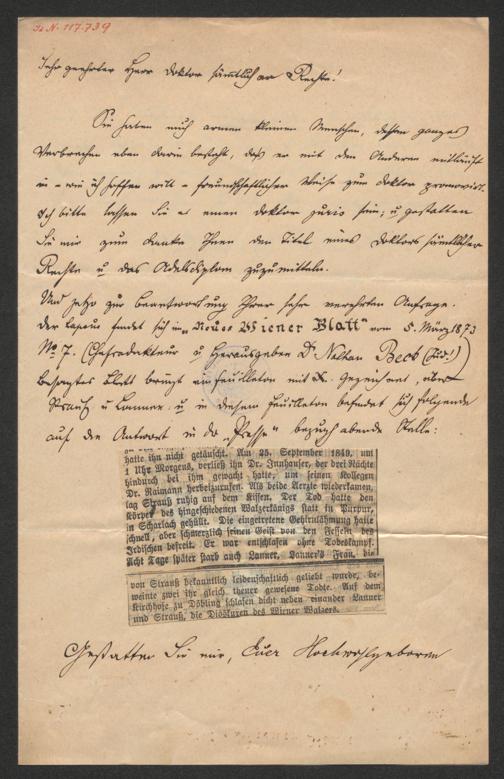 I. N. 117.739
Sehr geehrter Herr Doktor sämtlicher Rechte!
Sie haben mich armen kleinen Menschen, dessen ganzes
Verbrechen eben darin besteht, daß er mit den Anderen mitläuft
in – wie ich hoffen will – freundschaftlicher Weise zum Doktor promovirt.
Ich bitte lassen Sie es einen Doktor juris sein; u gestatten
Sie mir zum Danke Ihnen den Titel eines Doktors sämtlicher
Rechte u das Adelsdiplom zuzumitteln.
Und jetzo zur Beantwortung Ihrer sehr verehrten Anfrage.
Der Lapsus findet sich in „Neues Wiener Blatt" vom 5. März 1873
No 7. (Chefredakteur u Herausgeber Dr Nathan Beck (Jud!))
Besagtes Blatt bringt ein Feuilleton mit X. gezeichnet, über
Strauß u Lanner. u in diesem Feuilleton befindet sich folgende
auf die Antwort in der „Presse" bezug habende Stelle:
hatte ihn nicht getäuscht. Am 25. September 1849, um
1 Uhr Morgens, verließ ihn Dr. Innhauser, der drei Nächte
hindurch bei ihm gewacht hatte, um seinen Kollegen
Dr. Raimann herbeizurufen. Als beide Aerzte wiederkamen,
lag Strauß ruhig auf dem Kissen. Der Tod hatte den
Körper des hingeschiedenen Walzerkönigs statt in Purpur,
in Scharlach gehüllt. Die eingetretene Gehirnlähmung hatte
schnell, aber schmerzlich seinen Geist von den Fesseln des
Irdischen befreit. Er war entschlafen ohne Todeskampf.
Acht Tage später starb auch Lanner. Lanner's Frau, die
von Strauß bekanntlich leidenschaftlich geliebt wurde, be-
weinte zwei ihr gleich theuer gewesene Todte. Auf dem
Kirchhofe zu Döbling schlafen dicht neben einander Lanner
und Strauß, die Dioskuren des Wiener Walzers.
Gestatten Sie mir, Euer Hochwohlgeboren